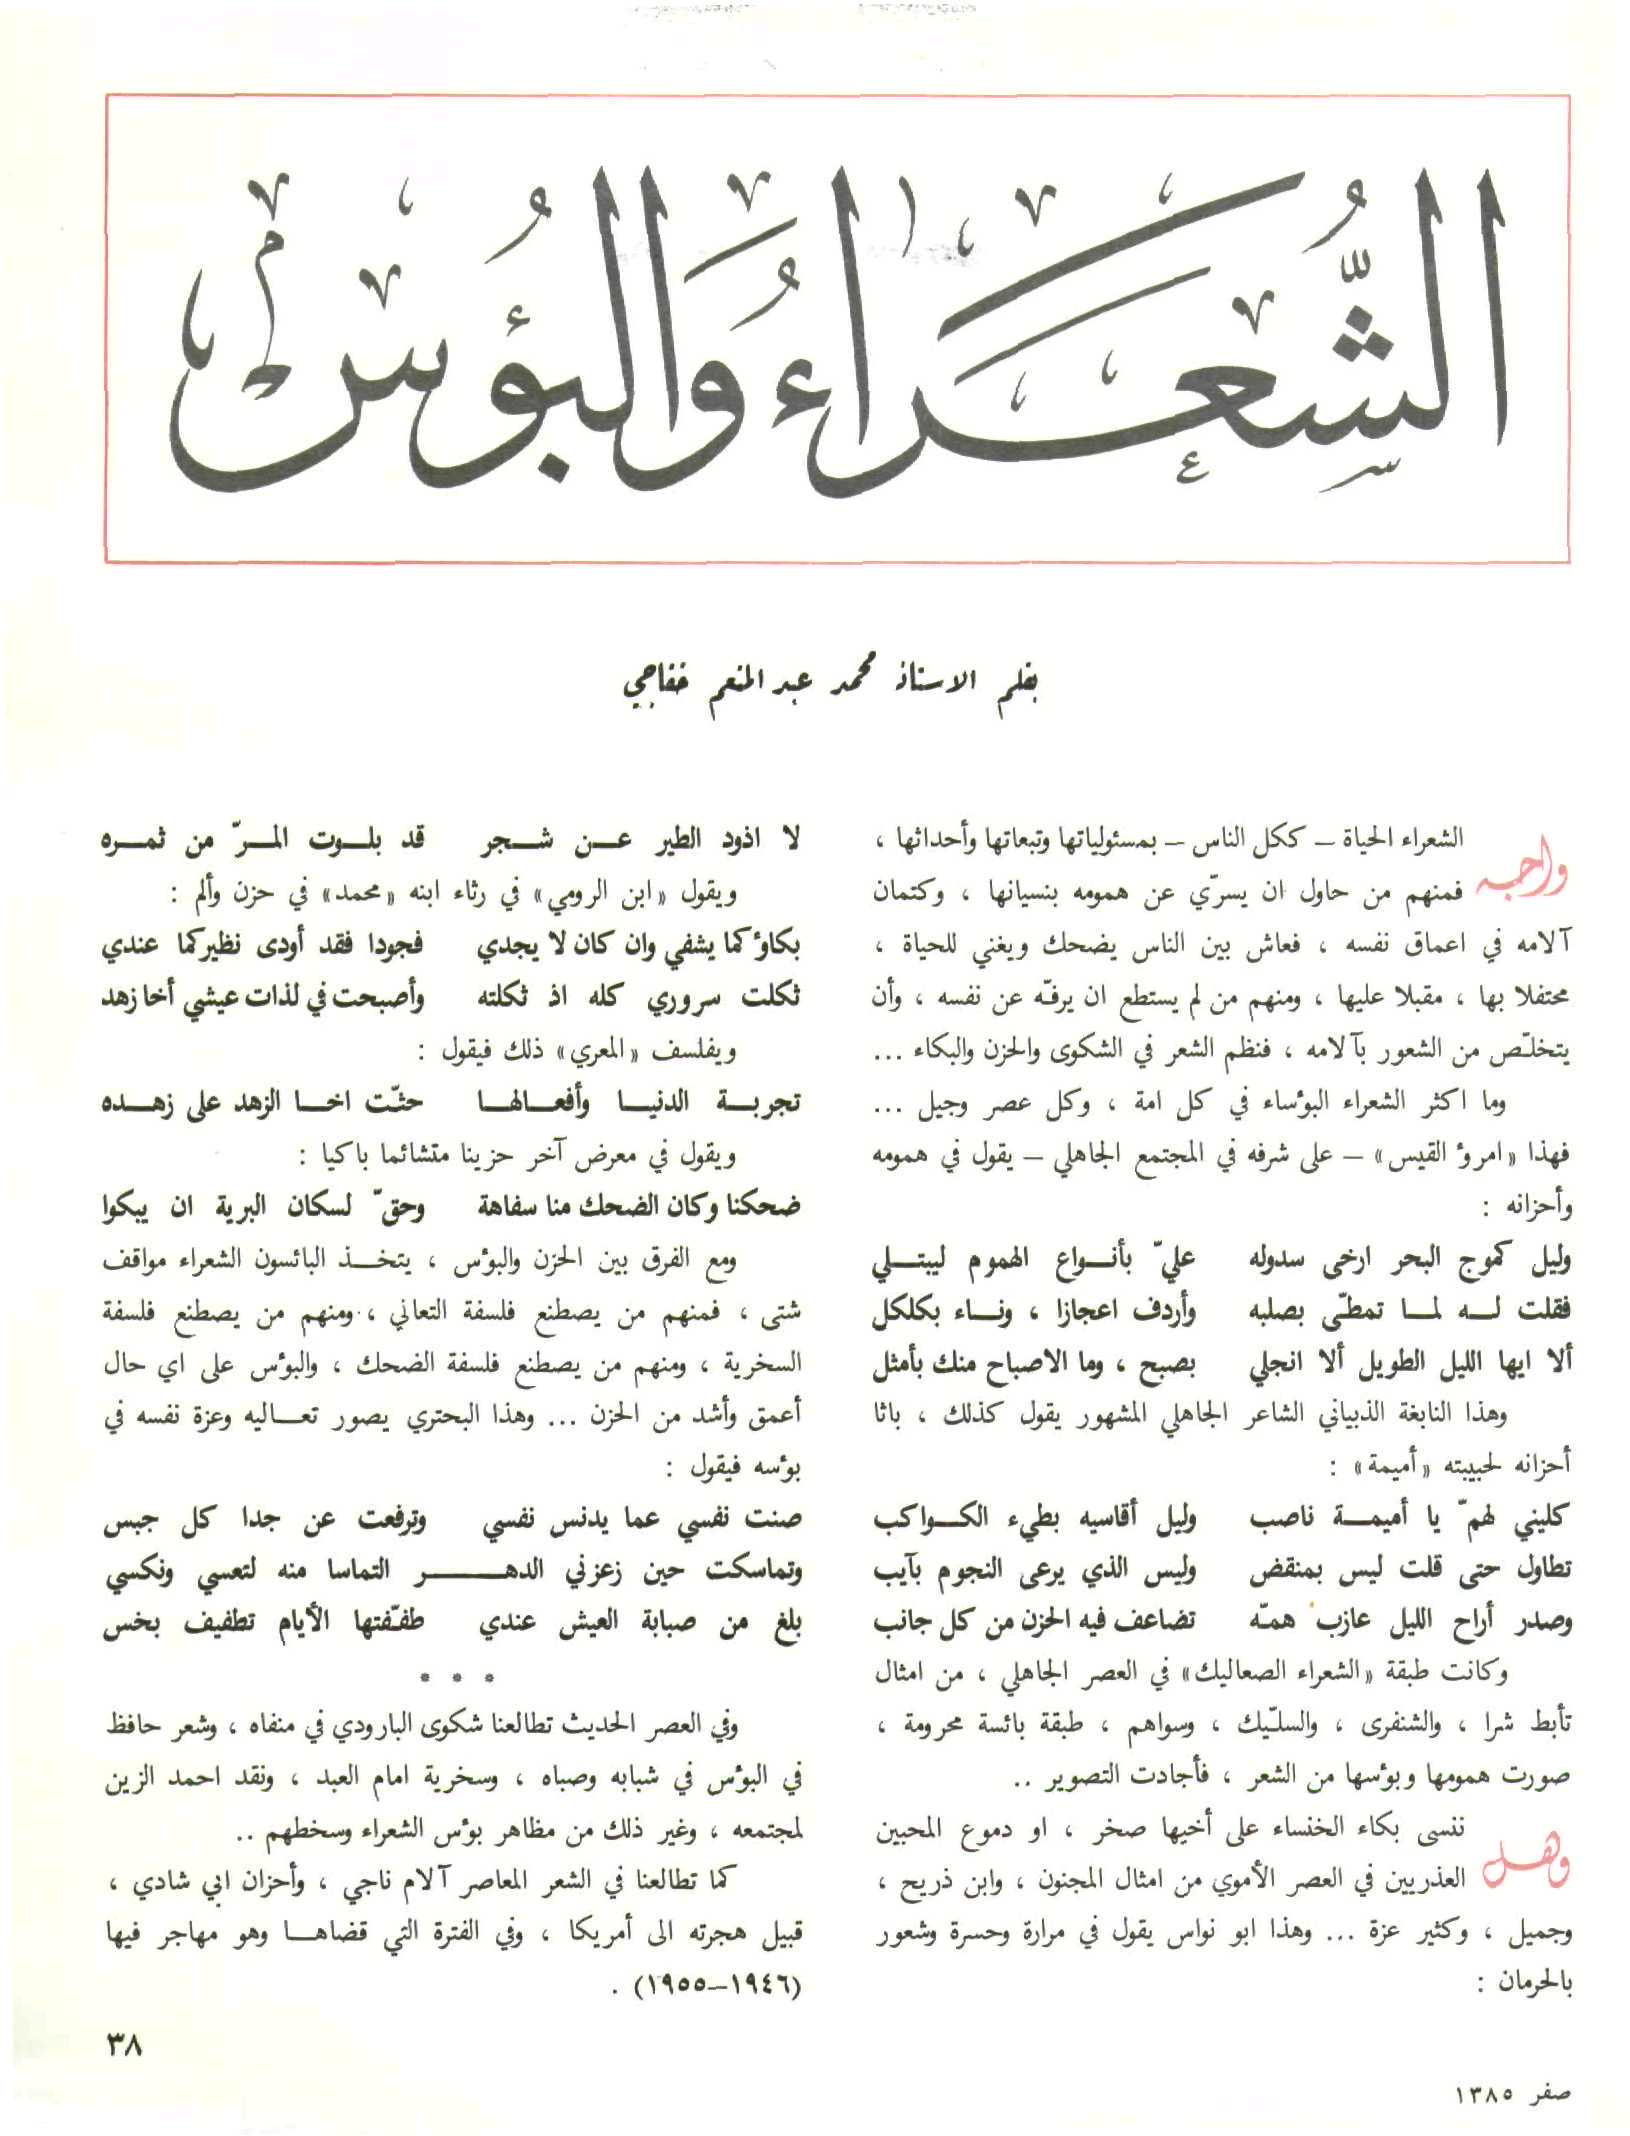 الشُّعَرَاءُ وَالبُؤسُ
بقلم الاستاذ محمد عبد المنعم خفاجي
واجه الشعراء الحياة – ككل الناس – بمسئولياتها وتبعاتها وأحداثها ،
فمنهم من حاول ان يسرّي عن همومه بنسيانها ، وكتمان
آلامه في اعماق نفسه ، فعاش بين الناس يضحك ويغني للحياة ،
محتفلا بها ، مقبلا عليها ، ومنهم من لم يستطع ان يرفّه عن نفسه ، وأن
يتخلّص من الشعور بآلامه ، فنظم الشعر في الشكوى والحزن والبكاء ...
وما اكثر الشعراء البوٌساء في كل امة ، وكل عصر وجيل ...
فهذا «امروٌ القيس» – على شرفه في المجتمع الجاهلي – يقول في همومه
وأحزانه :
وليل كموج البحر ارخى سدوله عليّ بأنواع الهموم ليبتلي
فقلت له لما تمطّى بصلبه وأردف اعجازا ، وناء بكلكل
ألا ايها الليل الطويل ألا انجلي بصبح ، وما الاصباح منك بأمثل
وهذا النابغة الذبياني الشاعر الجاهلي المشهور يقول كذلك ، باثا
أحزانه لحبيبته «أميمة» :
كليني لهمّ يا أميمة ناصب وليل أقاسيه بطيء الكواكب
تطاول حتى قلت ليس بمنقض وليس الذي يرعى النجوم بآيب
وصدر أراح الليل عازب همّه تضاعف فيه الحزن من كل جانب
وكانت طبقة «الشعراء الصعاليك» في العصر الجاهلي ، من امثال
تأبط شرا ، والشنفرى ، والسلّيك ، وسواهم ، طبقة بائسة محرومة ،
صورت همومها وبوٌسها من الشعر ، فأجادت التصوير ..
وهل ننسى بكاء الخنساء على أخيها صخر ، او دموع المحبين
العذريين في العصر الأموي من امثال المجنون ، وابن ذريح ،
وجميل ، وكثير عزة ... وهذا ابو نواس يقول في مرارة وحسرة وشعور
بالحرمان :
لا اذود الطير عن شجر قد بلوت المرّ من ثمره
ويقول «ابن الرومي» في رثاء ابنه «محمد» في حزن وألم :
بكاوٌكما يشفي وان كان لا يجدي فجودا فقد أودى نظيركما عندي
ثكلت سروري كله اذ ثكلته وأصبحت في لذات عيشي أخا زهد
ويفلسف «المعري» ذلك فيقول :
تجربة الدنيا وأفعالها حثّت اخا الزهد على زهده
ويقول في معرض آخر حزينا متشائما باكيا :
ضحكنا وكان الضحك منا سفاهة وحقّ لسكان البرية ان يبكوا
ومع الفرق بين الحزن والبوٌس ، يتخذ البائسون الشعراء مواقف
شتى ، فمنهم من يصطنع فلسفة التعاني ، ومنهم من يصطنع فلسفة
السخرية ، ومنهم من يصطنع فلسفة الضحك ، والبوٌس على اي حال
أعمق وأشد من الحزن ... وهذا البحتري يصور تعاليه وعزة نفسه في
بوٌسه فيقول :
صنت نفسي عما يدنس نفسي وترفعت عن جدا كل جبس
وتماسكت حين زعزني الدهر التماسا منه لتعسي ونكسي
بلغ من صبابة العيش عندي طفّفتها الأيام تطفيف بخس
* * *
وفي العصر الحديث تطالعنا شكوى البارودي في منفاه ، وشعر حافظ
في البوٌس في شبابه وصباه ، وسخرية امام العبد ، ونقد احمد الزين
لمجتمعه ، وغير ذلك من مظاهر بوٌس الشعراء وسخطهم ..
كما تطالعنا في الشعر المعاصر آلام ناجي ، وأحزان ابي شادي ،
قبيل هجرته الى أمريكا ، وفي الفترة التي قضاها وهو مهاجر فيها
(١٩٤٦–١٩٥٥) .
٣٨
صفر ١٣٨٥